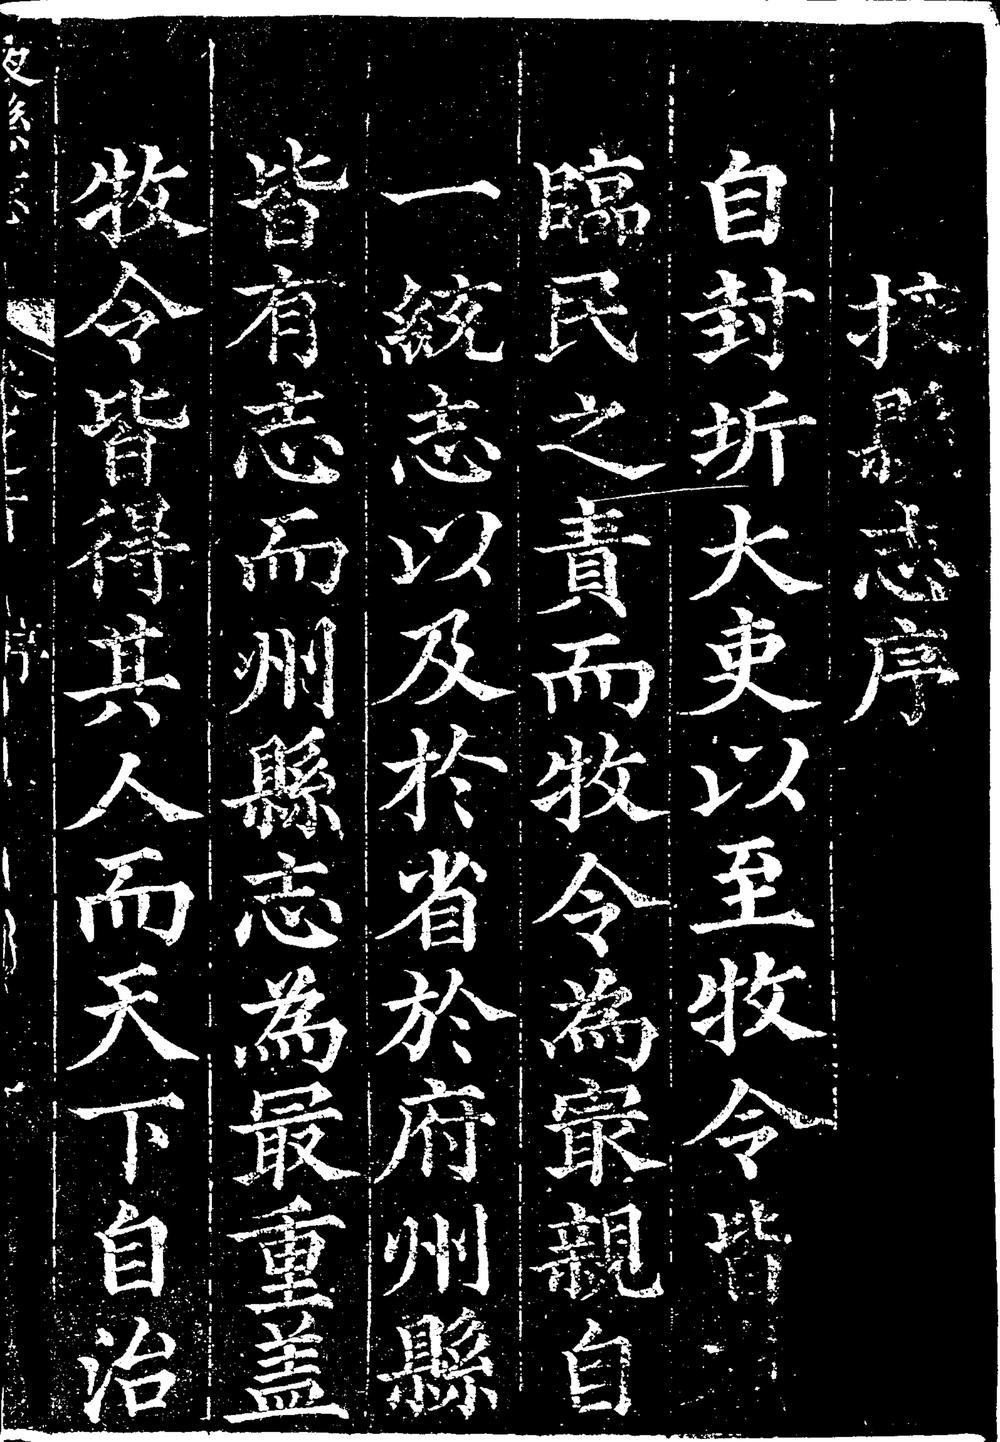 掖縣志序
自封圻大吏以至牧令皆有
臨民之責而牧令為冣親自
一統志以及於省於府州縣
皆有志而州縣志為最重蓋
牧令皆得其人而天下自治